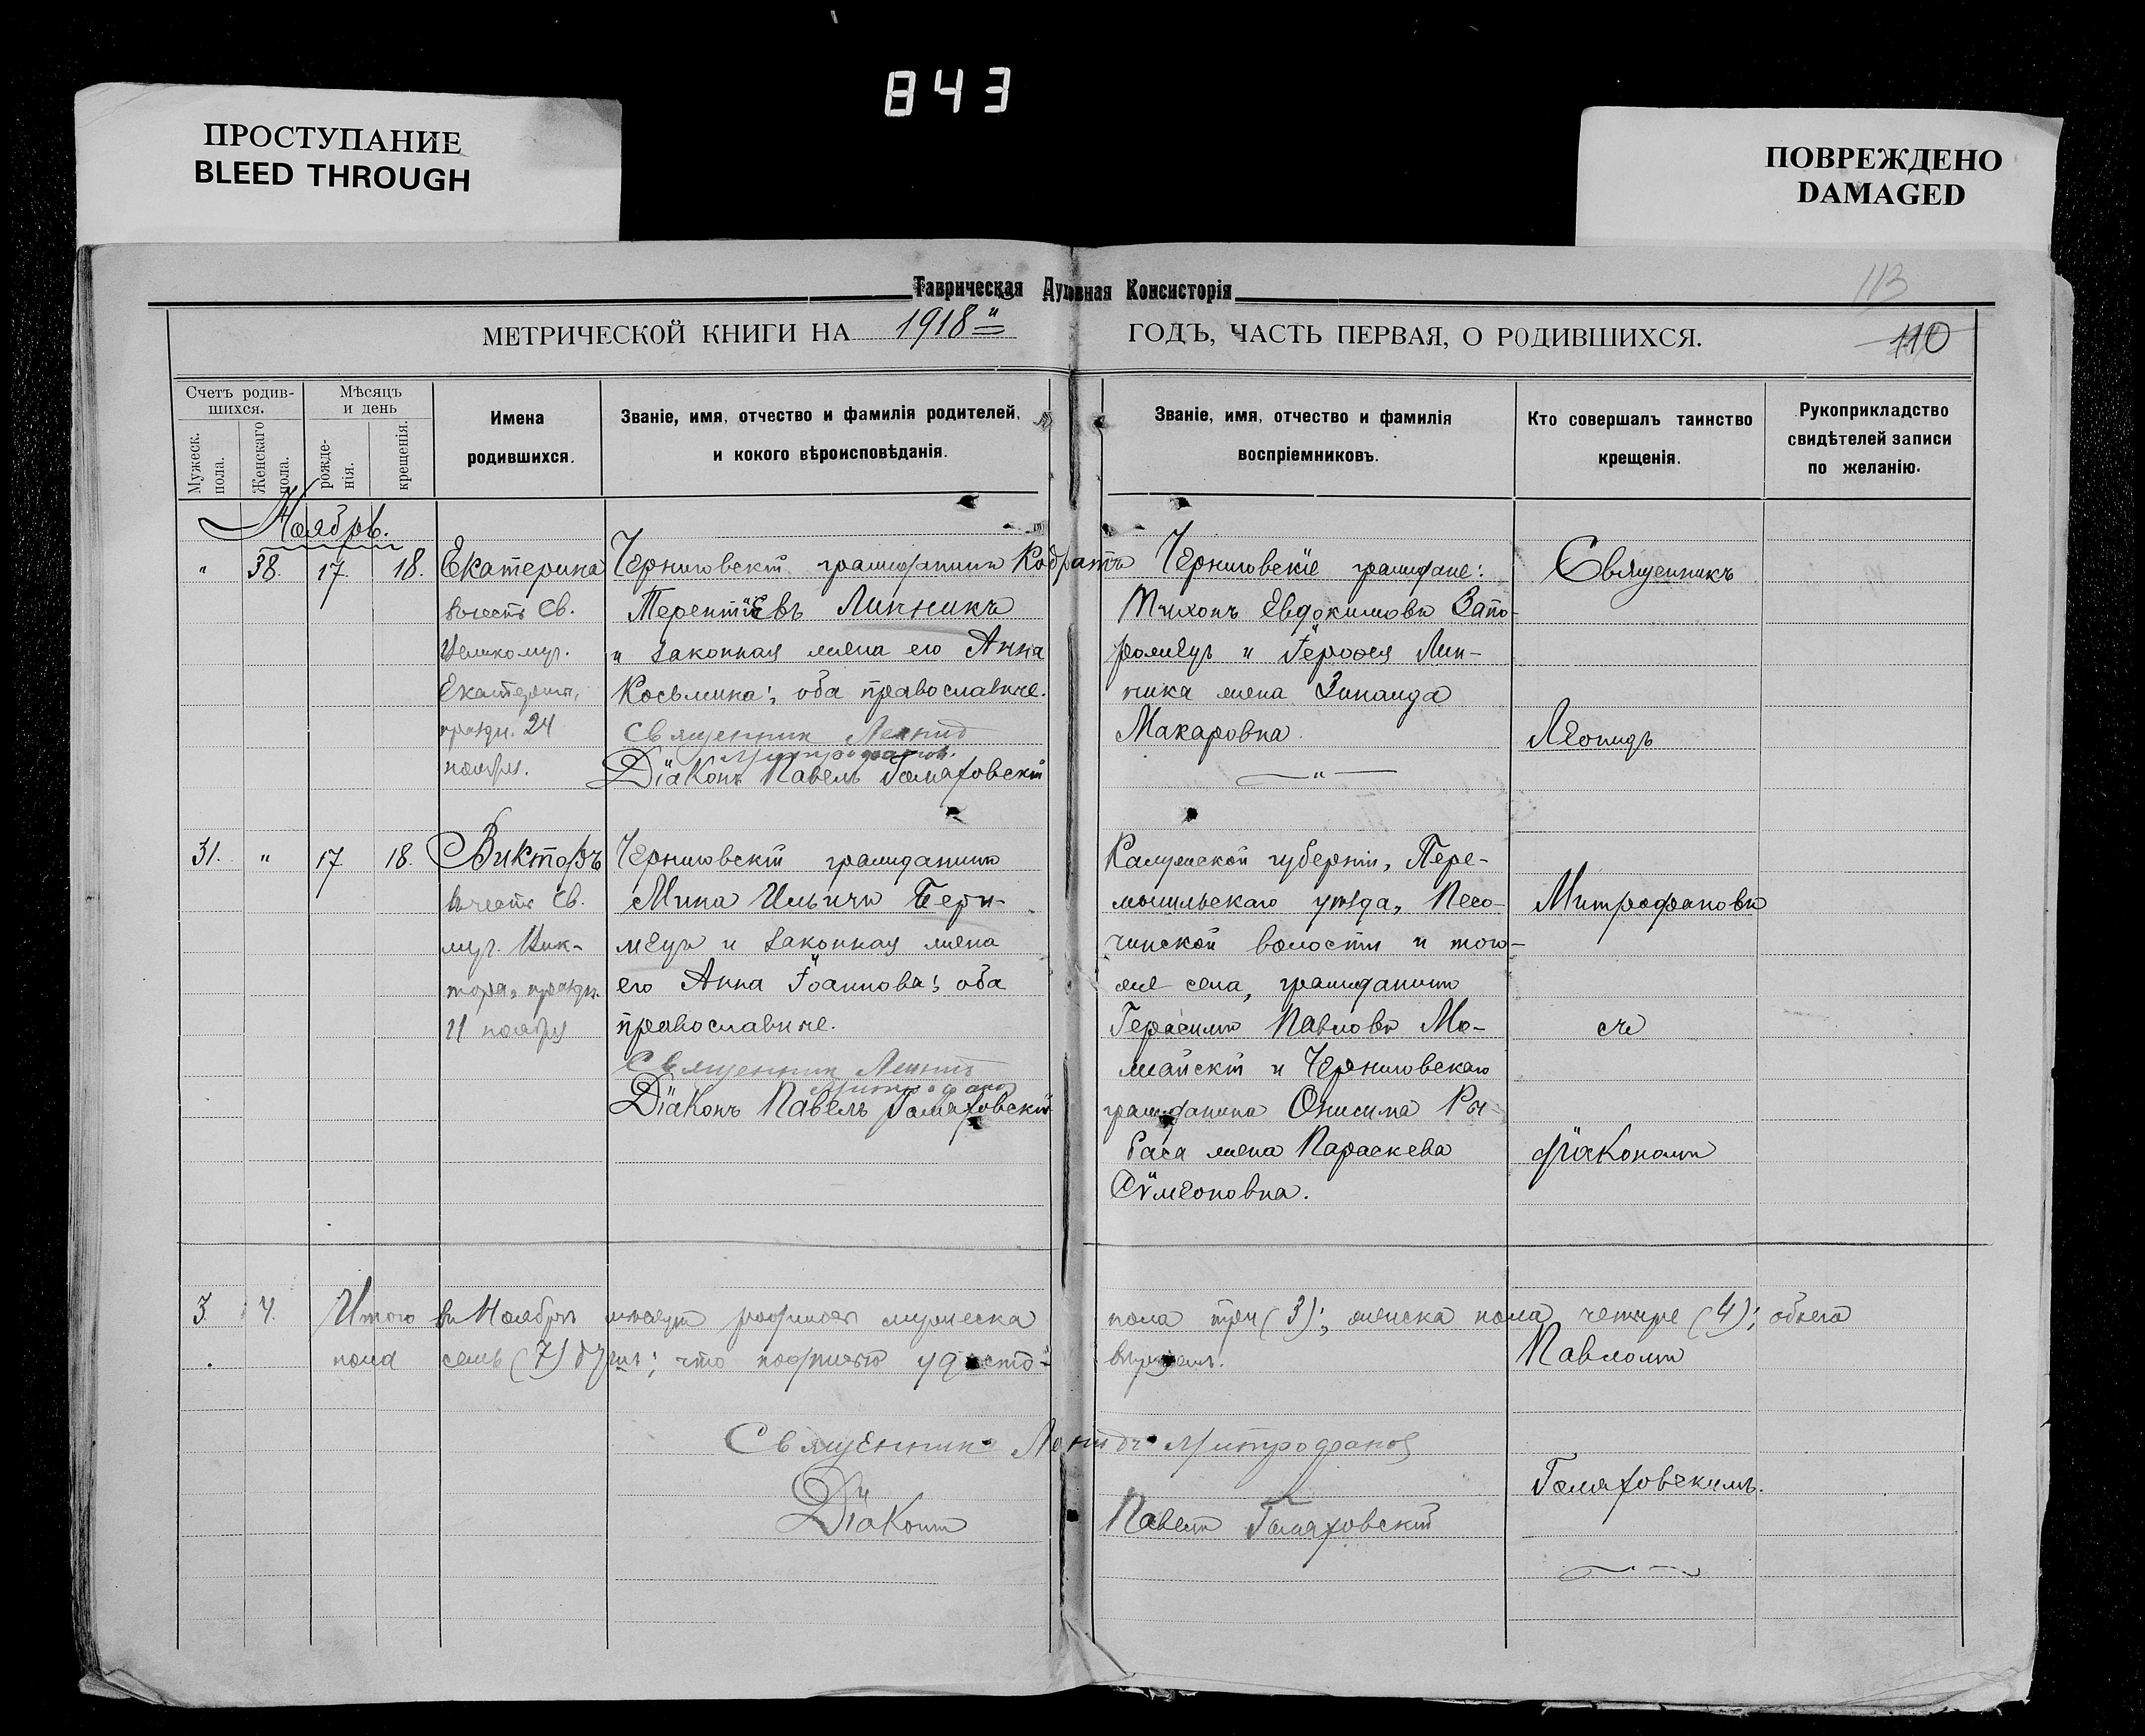 843
ПРОСТУПАНИЕ
BLEED THROUGH
ПОВРЕЖДЕНО
DAMAGED
Таврическая Духовная Консисторія
113
МЕТРИЧЕСКОЙ КНИГИ НА 1918й ГОДЪ, ЧАСТЬ ПЕРВАЯ, О РОДИВШИХСЯ.
110
Счетъ родив-
шихся.
Мужеск.
пола.
Женскаго
пола.
Мѣсяцъ
и день
рожде-
нія.
крещенія.
Имена
родившихся.
Званіе, имя, отчество и фамилія родителей,
и кокого вѣроисповѣданія.
Званіе, имя, отчество и фамилія
воспріемниковъ.
Кто совершалъ таинство
крещенія.
Рукоприкладство
свидѣтелей записи
по желанію.
Ноябрь.
" 38. 17. 18.
Екатерина
въ честь Св.
Великомуч.
Екатерины,
праздн. 24
ноября.
Черниговскій гражданинъ Кодратъ
Терентіевъ Линникъ
и законная жена его Анна
Косьмина; оба православные.
Священник Леонид
Митрофанов.
Діаконъ Павелъ Гомяховскій
Черниговскіе граждане:
Тихонъ Евдокимовъ Запо-
рожецъ и Героѳея Лин-
ника жена Зинаида
Макаровна.
31. " 17. 18.
Викторъ
въ честь Св.
муч. Вик-
тора, праздн.
11 ноября
Черниговскій гражданинъ
Мина Ильичъ Бери-
мецъ и законная жена
его Анна Іоаннова; оба
православные.
Священник Леонид
Митрофанов
Діаконъ Павелъ Гомяховскій
Калужской губерніи, Пере-
мышльскаго уѣзда, Песо-
чинской волости и того-
же села, гражданинъ
Герасимъ Павловъ Мо-
жайскій и Черниговскаго
гражданина Онисима
жена Параскева
Сѵмеоновна.
Священникъ
Леонидъ
Митрофановъ
съ
діакономъ
Павломъ
Гомяховскимъ.
3. 4. Итого въ Ноябрѣ мѣсяцѣ родилось мужеска пола три (3); женска пола четыре (4); обоего
пола семь (7) душъ; что подписью удосто-
вѣряемъ.
Священник Леонидъ Митрофанов
Діаконъ Павелъ Гомяховскій